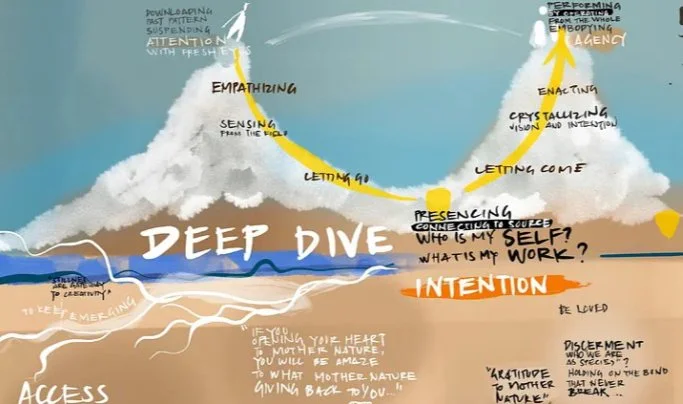 DOWNLOADING
PAST PATTERN
SUSPENDING
ATTENTION
WITH FRESH EYES
EMPATHIZING
SENSING
FROM THE FIELD
LETTING GO
PERFORMING
BY OPERATING
FROM THE WHOLE
EMBODYING
AGENCY
ENACTING
CRYSTALLIZING
VISION AND INTENTION
LETTING COME
PRESENCING
CONNECTING TO SOURCE
WHO IS MY SELF?
WHAT IS MY WORK?
DEEP DIVE
INTENTION
ARE GATEWAY
TO CREATIVITY"
TO KEEP EMERGING
ACCESS
"IF YOU
OPENING YOUR HEART
TO MOTHER NATURE,
YOU WILL BE AMAZE
TO WHAT MOTHER NATURE
GIVING BACK TO YOU..."
BE LOVED
DISCERMENT
WHO WE ARE
AS SPECIES"?
HOLDING ON THE BOND
THAT NEVER
BREAK...
"GRATITUDE
TO MOTHER
NATURE"